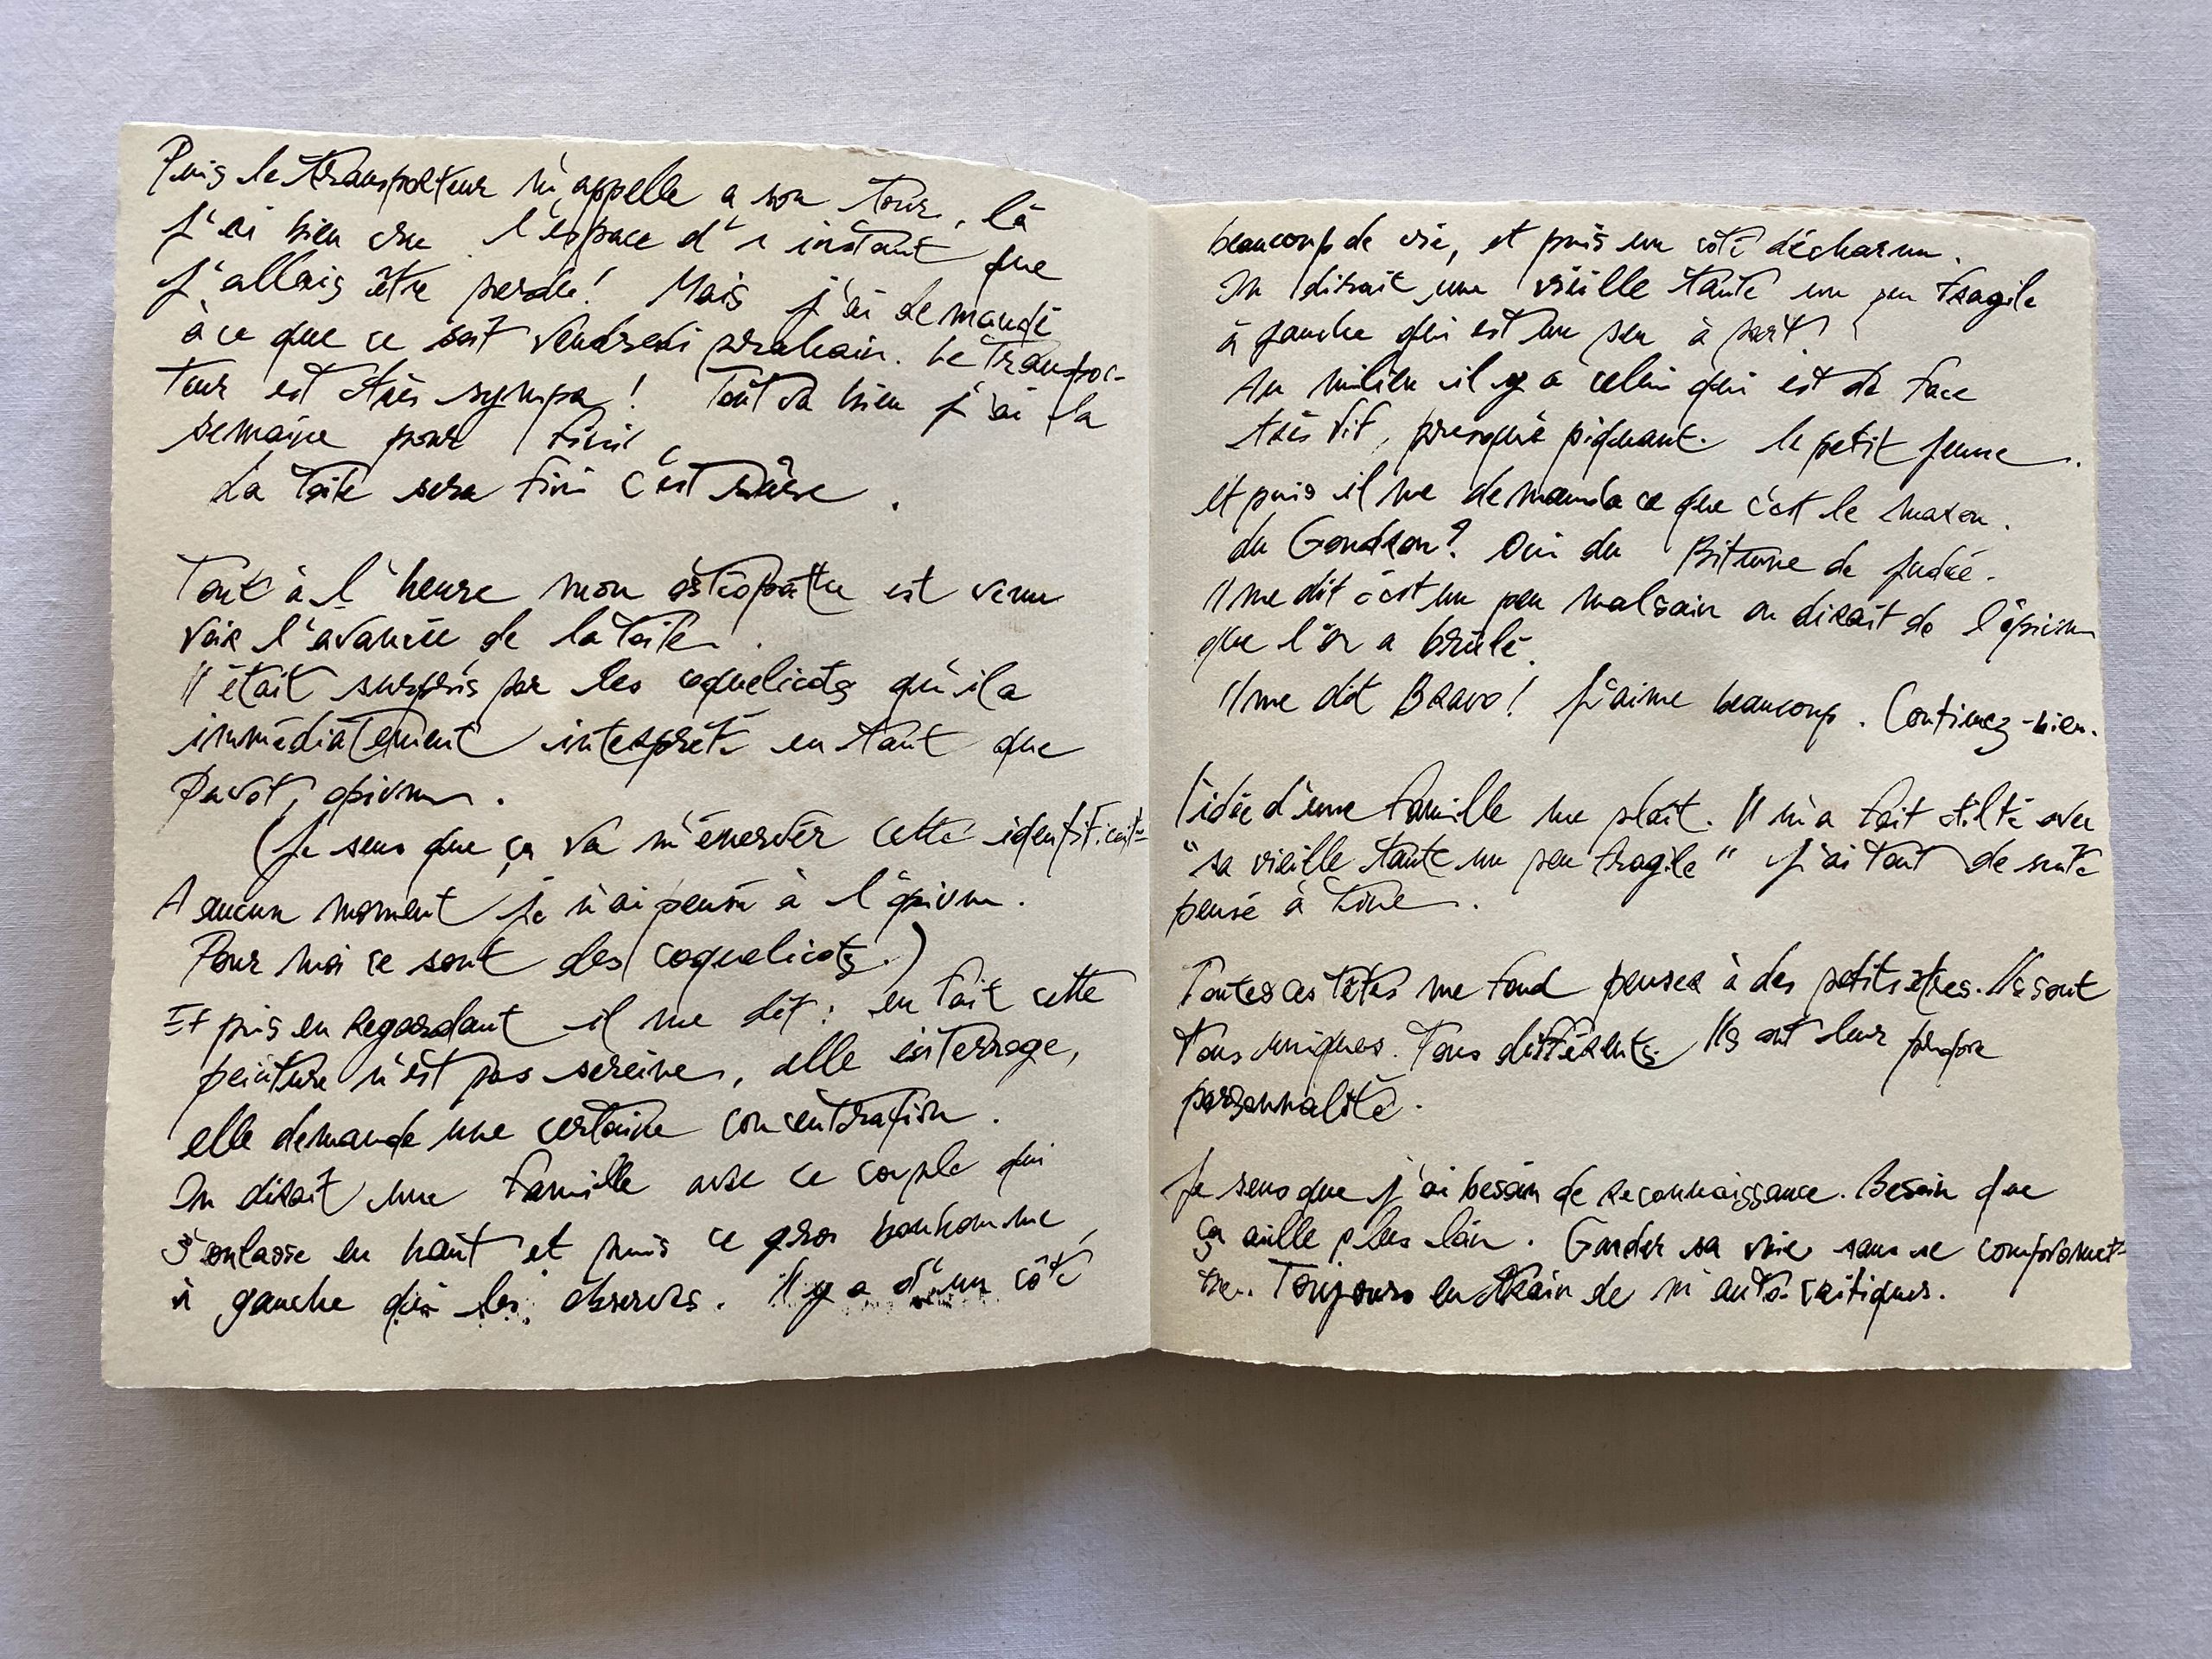 Puis le transporteur m'appelle a son tour, là
j'ai bien cru l'espace d'1 instant que
j'allais être perdu! Mais j'ai demandé
à ce que ce soit vendredi prochain. Le transpor-
teur est très sympa! Tout va bien j'ai la
semaine pour finir.
La toile sera fini c'est sûre.
Tout à l'heure mon ostéopathe est venu
voir l'avancée de la toile.
Il était surpris par les coquelicots qu'il a
immédiatement interprété en tant que
Pavot, opium.
(Je sens que ça va m'énerver cette identificat-
A aucun moment je n'ai pensé à l'opium.
Pour moi ce sont des coquelicots.)
Et puis en regardant il me dit : en fait cette
peinture n'est pas sereine, elle interroge,
elle demande une certaine concentration.
On dirait une famille avec ce couple qui
s'enlasse en haut et puis ce gros bonhomme
à gauche qui les observes. Il y a d'un côté
beaucoup de vie, et puis un côté décharnu.
On dirait une vieille tante un peu fragile
à gauche qui est un peu à part!
Au milieu il y a celui qui est de face
très vif, presque piquant. le petit jeune.
et puis il me demanda ce que c'est le maron.
du Goudron? Oui du Bitume de Judée.
Il me dit c'est un peu malsain on dirait de l'opium
que l'on a brûlé.
Il me dit Bravo! J'aime beaucoup. Continuez-bien.
l'idée d'une famille me plaît. Il m'a fait tilté avec
"sa vieille tante un peu fragile" J'ai tout de suite
pensé à Tine.
Toutes ces têtes me fond penser à des petits êtres. Ils sont
Tous uniques. Tous différents. Ils ont leur propre
personnalité.
Je sens que j'ai besoin de reconnaissance. Besoin que
ça aille plus loin. Garder sa voie sans se compromet-
tre. Toujours en train de m'auto-critiquer.